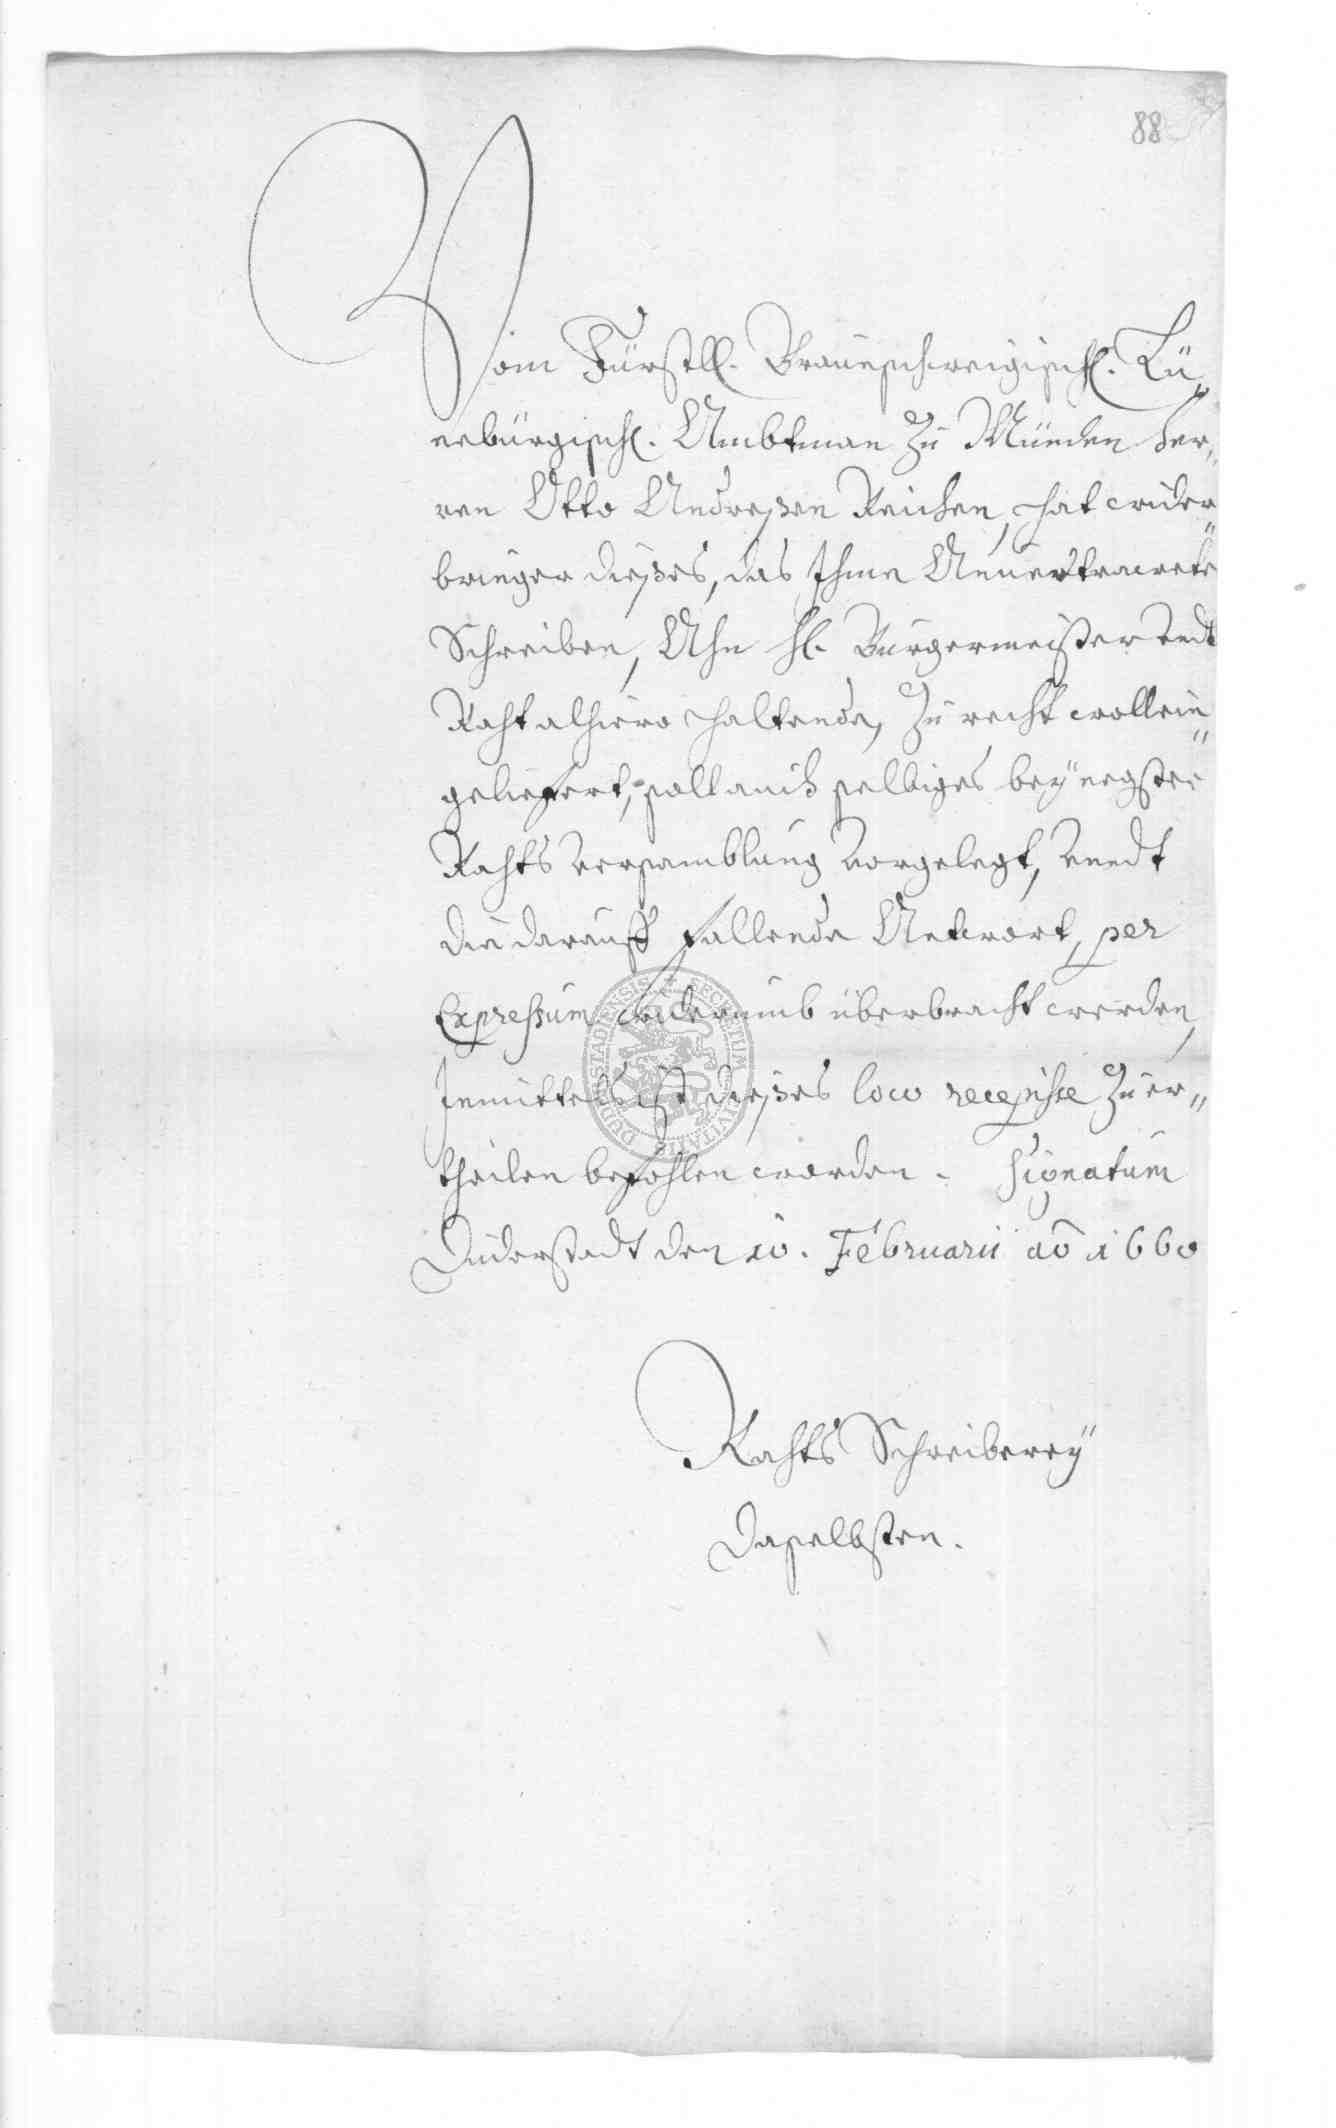 88
Vom Fürstll. Braunschweigisch. Lü„
neburgisch. Ambtman zu Münden Her„
ren Otto Andreßen Reichen, hat wider„
bringer dießes, das Ihme Anvertrawete
Schreiben, Ahn H. Bürgermeister undt
Raht alhiero haltende, zu recht wollein„
geliefert, soll auch selbiges bey negster
Rahts versamblung vorgelegt, unndt
die darauff fallende Antwort, per
Expressum widerumb überbracht werden,
Inmittels ist dießes loco recepisse zu er„
theilen befohlen worden. Signatum
Duderstadt den 10. Februarii aō 1660
Rahts Schreiberey
Daselbsten.
SECRETUM CIVITATIS DUDERSTADIENSIS